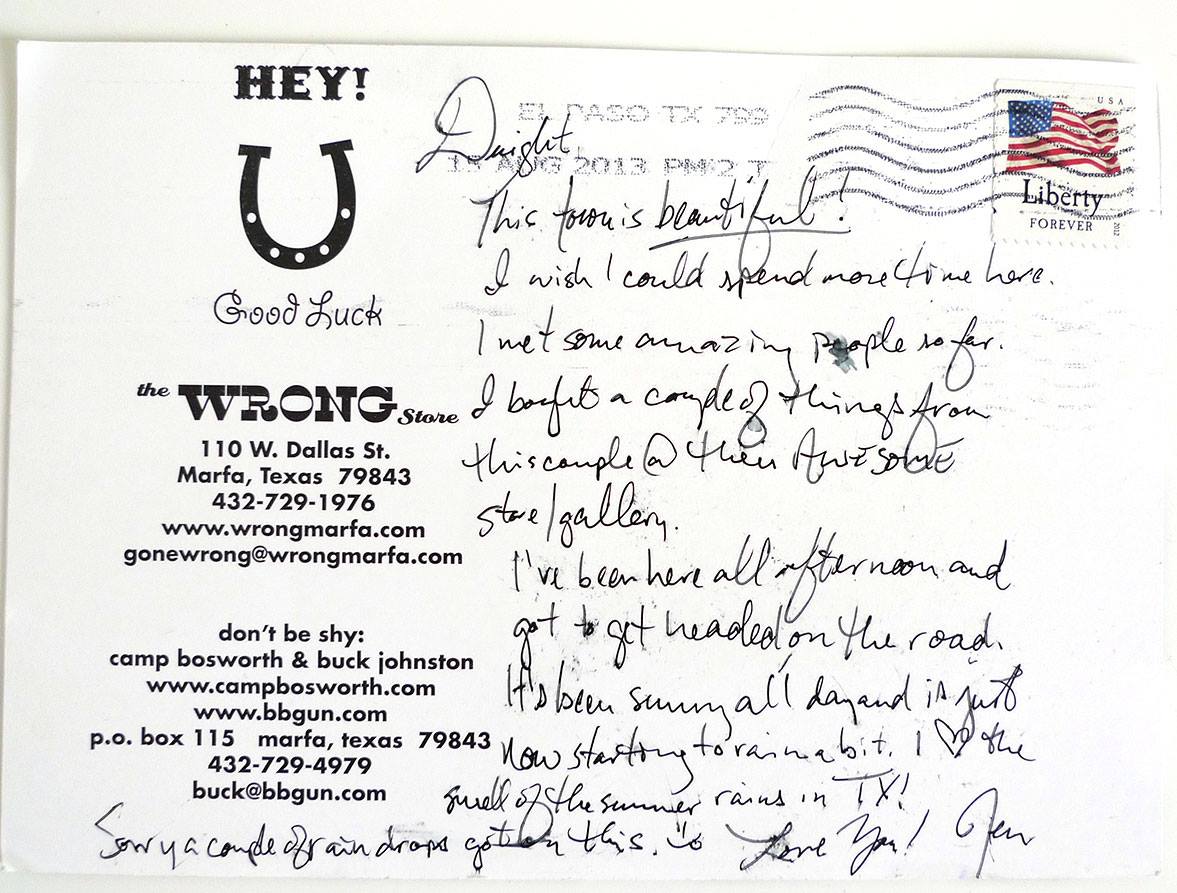 HEY!
Good Luck
the WRONG Store
110 W. Dallas St.
Marfa, Texas 79843
432-729-1976
www.wrongmarfa.com
gonewrong@wrongmarfa.com
don't be shy:
camp bosworth & buck johnston
www.campbosworth.com
www.bbgun.com
p.o. box 115 marfa, texas 79843
432-729-4979
buck@bbgun.com
EL PASO TX 799
AUG 2013 PM 2 T
USA
Liberty
FOREVER
2012
Dwight
This town is beautiful!
I wish I could spend more time here.
I met some amazing people so far.
I bought a couple of things from
this couple @ their AWESOME
store/gallery.
I've been here all afternoon and
got to get headed on the road.
It's been sunny all day and is just
now starting to rain a bit. I ♡ the
smell of the summer rains in TX!
Sorry a couple of rain drops got on this. ☺ Love You! Jen